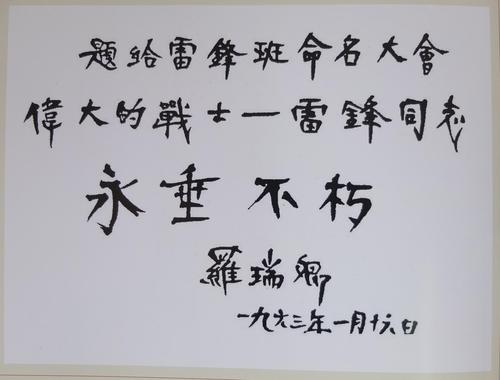 題給雷鋒班命名大會
偉大的戰士一雷鋒同志
永垂不朽
羅瑞卿
一九六三年一月十六日